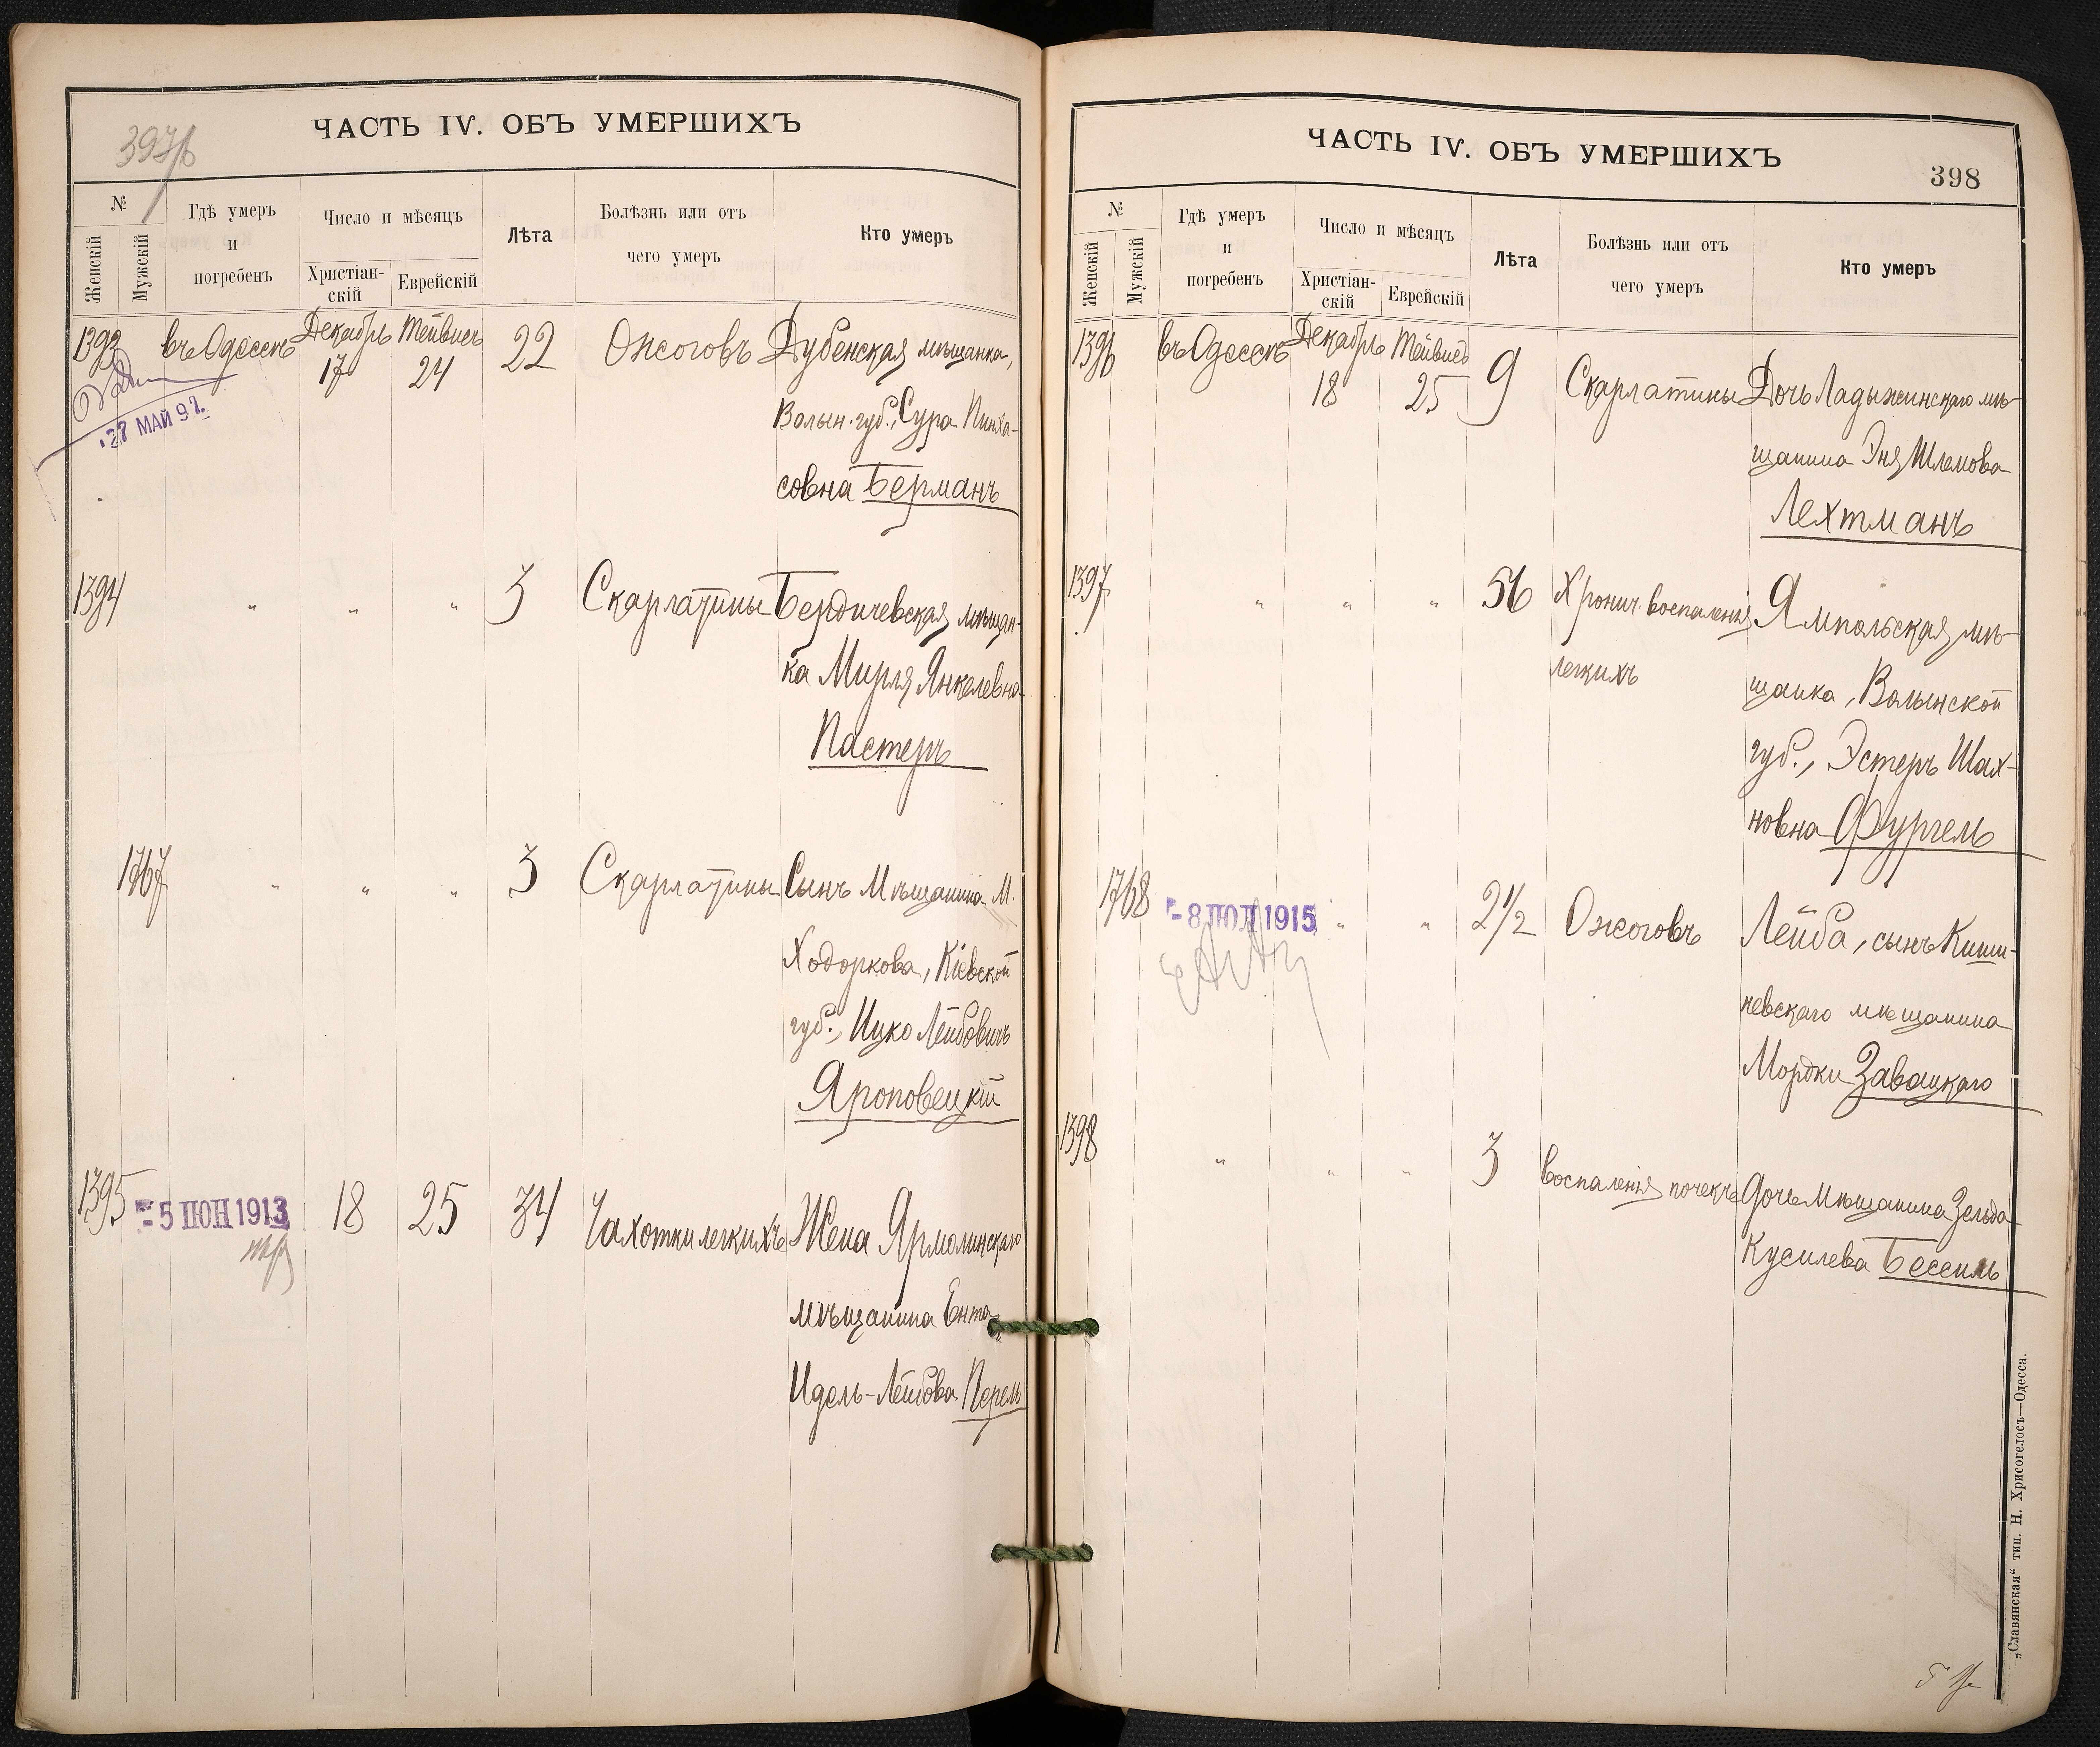 ЧАСТЬ IV. ОБЪ УМЕРШИХЪ
№
Женскій
Мужскій
Гдѣ умеръ
и
погребенъ
Число и мѣсяцъ
Христіан-
скій
Еврейскій
Лѣта
Болѣзнь или отъ
чего умеръ
Кто умеръ
1393
въ Одессѣ
Декабрь
17
Тейвисъ
24
22
Ожоговъ
Дубенская мѣщанка,
Волын. губ., Сура Пинха-
совна Берманъ
27 МАЙ 92.
1394
"
"
"
3
Скарлатины
Бердичевская мѣщан-
ка Мирля Янкелевна
Пастеръ
1767
"
"
"
3
Скарлатины
Сынъ Мѣщанина М.
Ходоркова, Кіевской
губ., Ицко Лейбовичъ
Яроповецкій
1395
- 5 ІЮН 1913
18
25
34
Чахотки легкихъ
Жена Ярмолинскаго
мѣщанина Ента
Идель-Лейбова Перель
ЧАСТЬ IV. ОБЪ УМЕРШИХЪ
398
№
Женскій
Мужскій
Гдѣ умеръ
и
погребенъ
Число и мѣсяцъ
Христіан-
скій
Еврейскій
Лѣта
Болѣзнь или отъ
чего умеръ
Кто умеръ
1396
въ Одессѣ
Декабрь
18
Тейвисъ
25
9
Скарлатины
Дочь Ладыжинскаго мѣ-
щанина Эня Шлемова
Лехтманъ
1397
"
"
"
56
Хронич. воспаленія
легкихъ
Ямпольская мѣ-
щанка, Волынской
губ., Эстеръ Шах-
новна Фургель
1768
- 8 ІЮЛ 1915
"
"
2 1/2
Ожоговъ
Лейба, сынъ Киши-
невскаго мѣщанина
Мордки Завацкаго
1398
"
"
"
3
воспаленія почекъ
дочь Мѣщанина Зельда
Кусилева Бессиль
„Славянская“ тип. Н. Хрисогелосъ—Одесса.